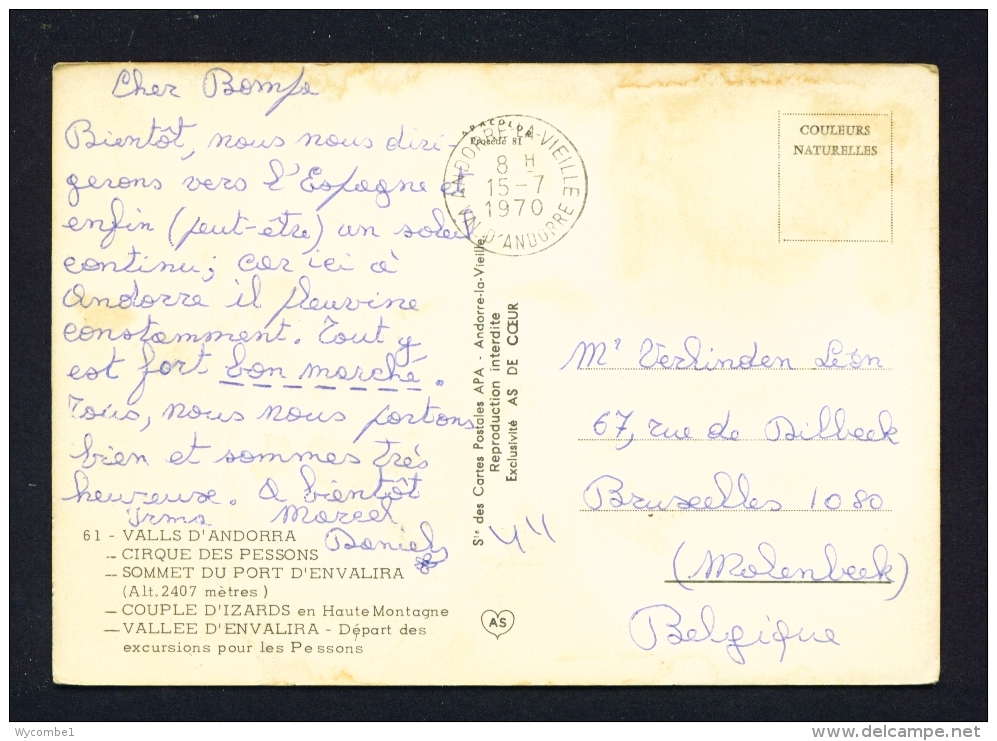 Cher Bompa
Bientôt, nous nous diri-
gerons vers l'Espagne et
enfin (peut-être) un soleil
continu; car ici à
Andorre il pleuvine
constamment. Tout y
est fort bon marché.
Tous, nous nous portons
bien et sommes très
heureuse. A bientôt
Irma Marcel
Daniel
61 - VALLS D'ANDORRA
— CIRQUE DES PESSONS
— SOMMET DU PORT D'ENVALIRA
(Alt. 2407 mètres)
— COUPLE D'IZARDS en Haute Montagne
— VALLEE D'ENVALIRA - Départ des
excursions pour les Pessons
APACOLOR
Procédé 81
ANDORRE-LA-VIEILLE
8 H
15-7
1970
VAL. D'ANDORRE
Sté des Cartes Postales APA - Andorre-la-Vieille
Reproduction interdite
Exclusivité AS DE CŒUR
44
AS
COULEURS
NATURELLES
Mr Verlinden Léon
67, rue de Dilbeek
Bruxelles 1080
(Molenbeek)
Belgique
Wycombe1
delcampe.net